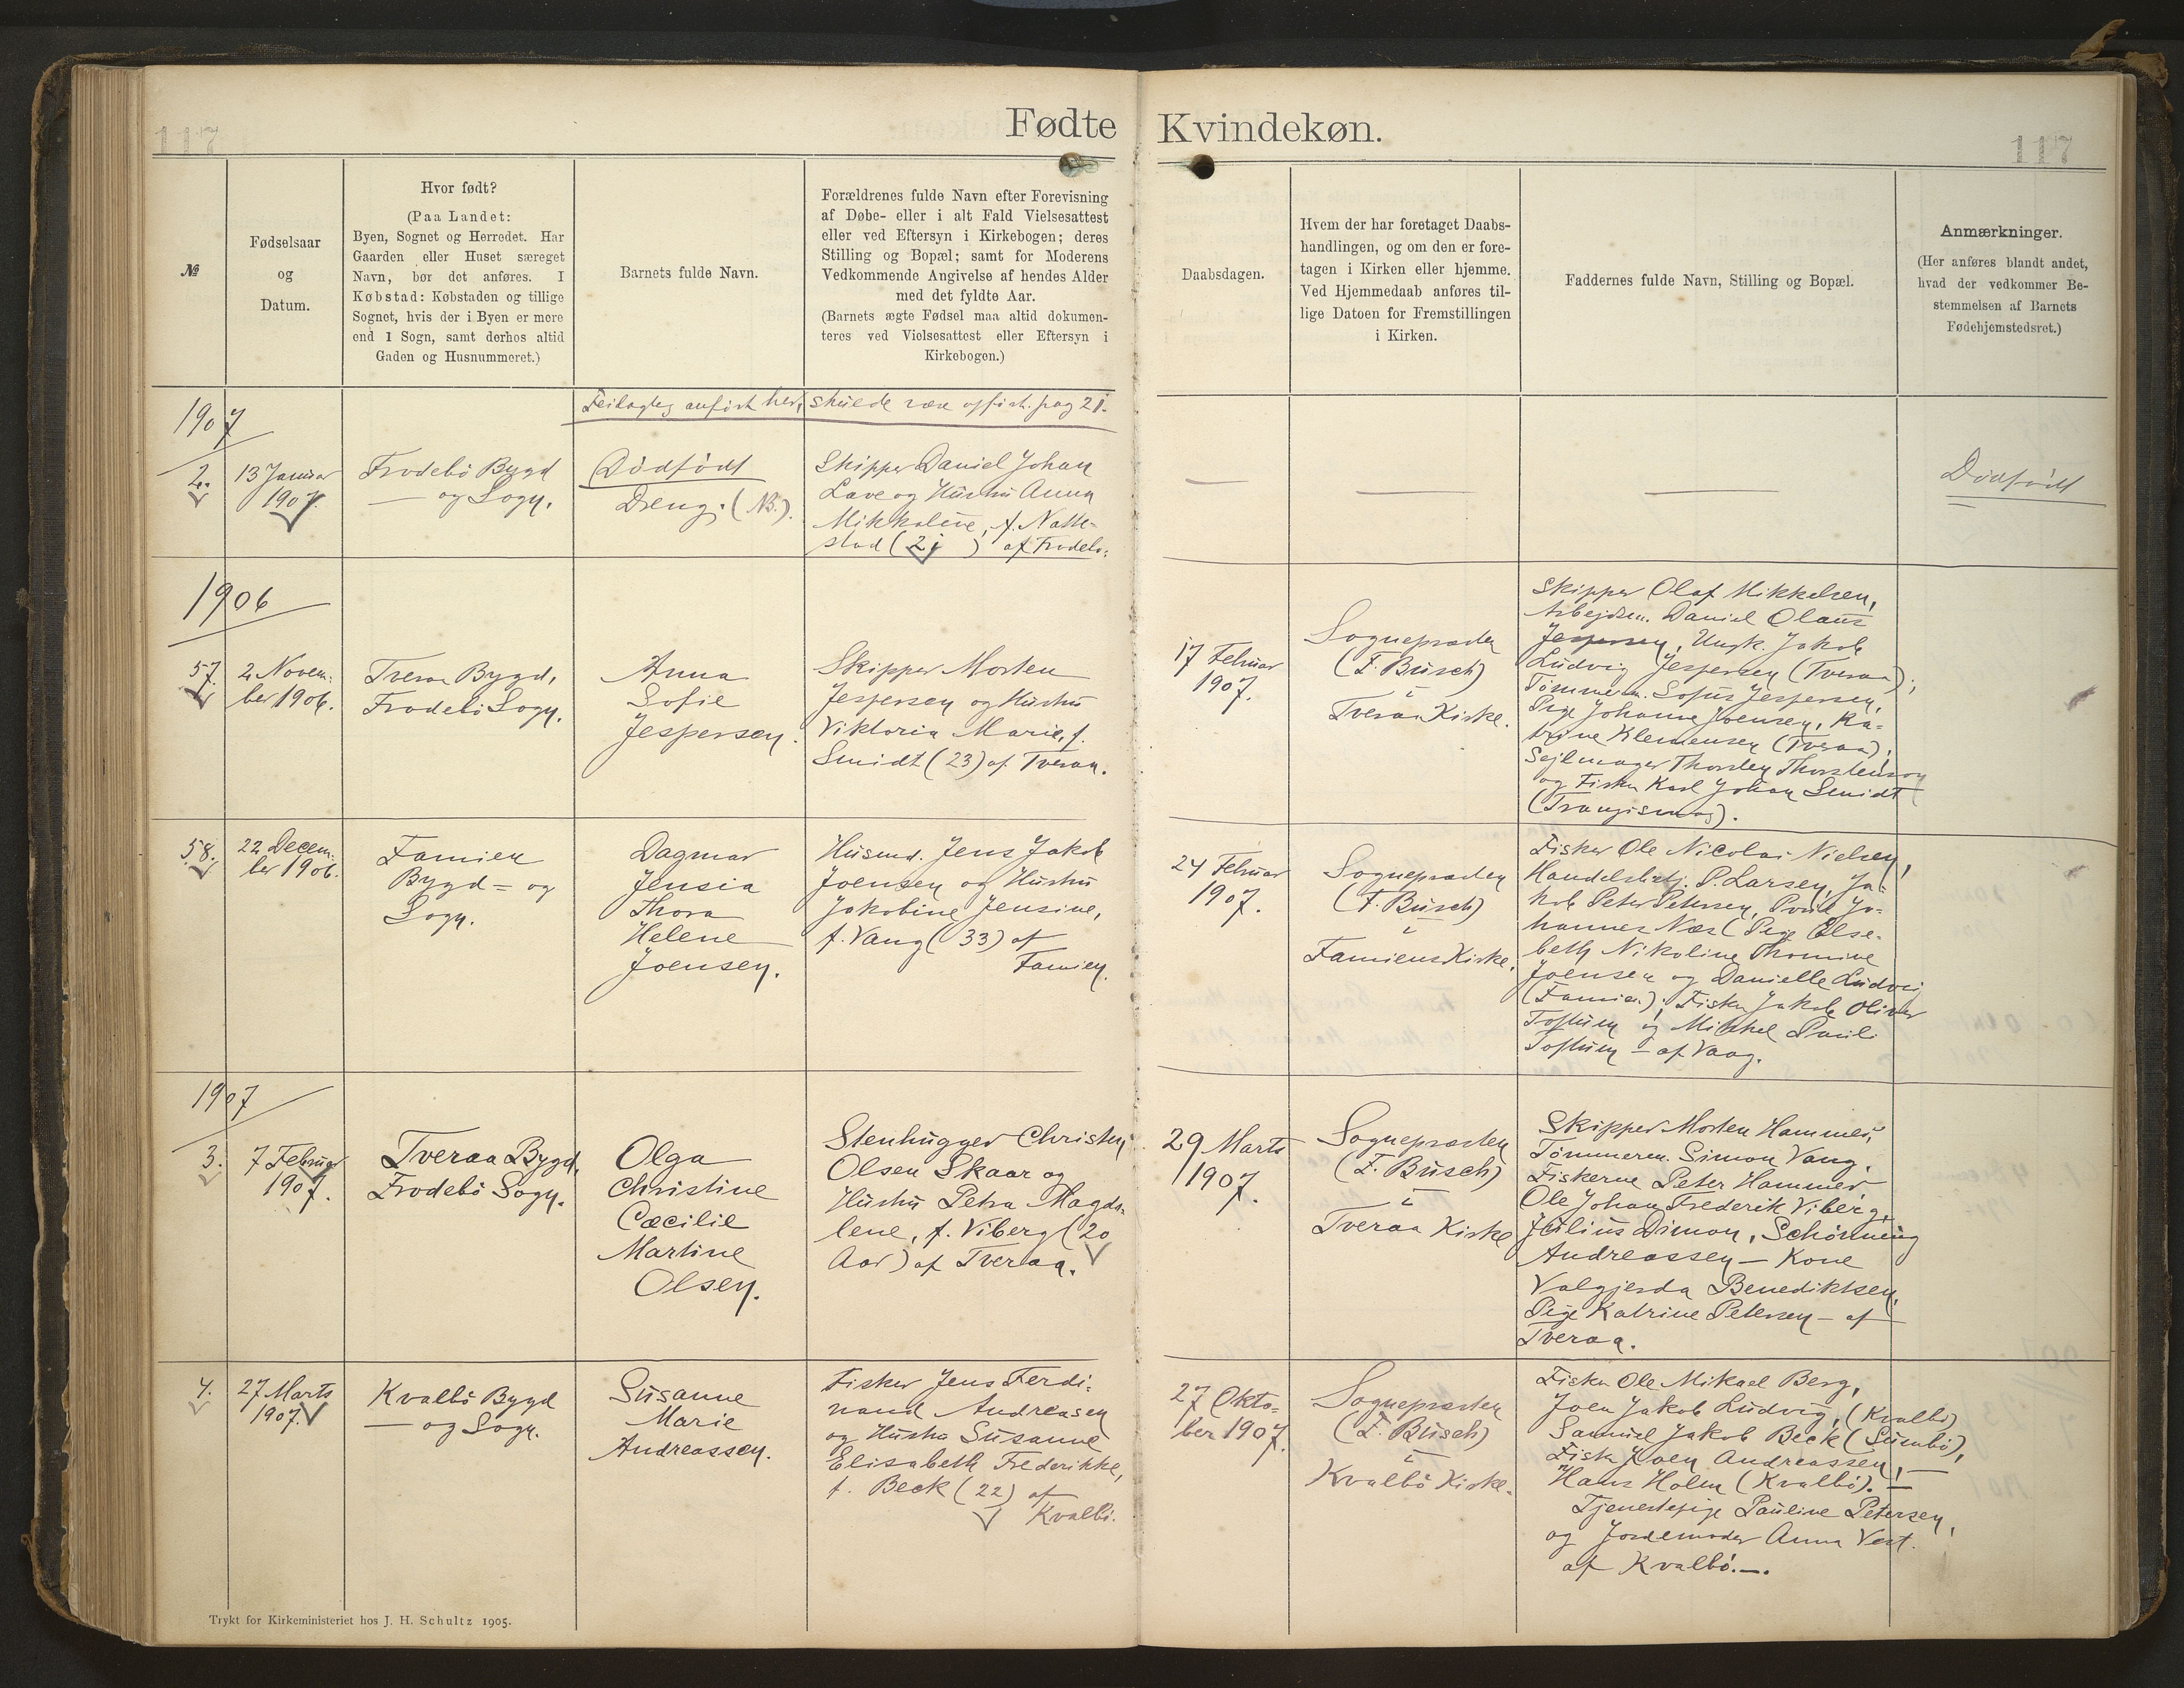 117
Fødte
Kvindekøn.
117
№
Fødselsaar
og
Datum.
Hvor født?
(Paa Landet:
Byen, Sognet og Herredet. Har
Gaarden eller Huset særeget
Navn, bør det anføres. I
Købstad: Købstaden og tillige
Sognet, hvis der i Byen er mere
end 1 Sogn, samt derhos altid
Gaden og Husnummeret.)
Barnets fulde Navn.
Forældrenes fulde Navn efter Forevisning
af Døbe- eller i alt Fald Vielsesattest
eller ved Eftersyn i Kirkebogen; deres
Stilling og Bopæl; samt for Moderens
Vedkommende Angivelse af hendes Alder
med det fyldte Aar.
(Barnets ægte Fødsel maa altid dokumen-
teres ved Vielsesattest eller Eftersyn i
Kirkebogen.)
Daabsdagen.
Hvem der har foretaget Daabs-
handlingen, og om den er fore-
tagen i Kirken eller hjemme.
Ved Hjemmedaab anføres til-
lige Datoen for Fremstillingen
i Kirken.
Faddernes fulde Navn, Stilling og Bopæl.
Anmærkninger.
(Her anføres blandt andet,
hvad der vedkommer Be-
stemmelsen af Barnets
Fødehjemstedsret.)
Feilagtig anført her, skulde være opført pag 21.
1907
2.
13 Januar
1907.
Frodebö Bygd
— og Sogn.
Dödfödt
Dreng. (NB.).
Skipper Daniel Johan
Lave og Hustru Anna
Mikkaline, f. Natte-
stad (21) af Frodebö.
—
—
—
Dödfödt
1906
57.
2 Novem-
ber 1906.
Tveraa Bygd,
Frodebö Sogn.
Anna
Sofie
Jespersen.
Skipper Morten
Jespersen og Hustru
Viktoria Marie, f.
Smidt (23) af Tveraa.
17 Februar
1907.
Sognepræsten
(F. Busch)
i
Tveraa Kirke.
Skipper Olaf Mikkelsen,
Arbejdsm. Daniel Olaus
Jespersen, Ungk. Jakob
Ludvig Jespersen (Tveraa);
Tömmerm. Sofus Jespersen,
Pige Johanne Joensen, Ka-
trine Klemensen (Tveraa),
Sejlmager Thorsten Thorstenson
og Fisker Karl Johan Smidt
(Trangisvaag).
58.
22 Decem-
ber 1906.
Famien
Bygd = og
Sogn.
Dagmar
Jensia
Thora
Helene
Joensen.
Husmd. Jens Jakob
Joensen og Hustru
Jakobine Jensine,
f. Vang (33) af
Famien.
24 Februar
1907.
Sognepræsten
(F. Busch)
i
Famiens Kirke.
Fisker Ole Nicolai Nielsen,
Handelsbetj. P. Larsen, Ja-
kob Peter Petersen, Poul Jo-
hannes Næs (Pige Else-
beth Nikoline Thomine
Joensen og Danielle Ludvig
(Famien); Fisker Jakob Oliver
Toftum og Mikkel Pauli
Toftum — af Vaag.
1907
3.
7 Februar
1907.
Tveraa Bygd,
Frodebö Sogn.
Olga
Christine
Cæcilie
Martine
Olsen.
Stenhugger Christen
Olsen Skaar og
Hustru Petra Magda-
lene, f. Viberg (20
Aar) af Tveraa.
29 Marts
1907.
Sognepræsten
(F. Busch)
i
Tveraa Kirke
Skipper Morten Hammer,
Tömmerm. Simon Vang,
Fiskerne Peter Hammer
Ole Johan Frederik Viberg,
Julius Dimon, Schönning
Andreassen — Kone
Valgjerda Benediktsen,
Pige Katrine Petersen — af
Tveraa.
4.
27 Marts
1907.
Kvalbö Bygd
— og Sogn.
Susanne
Marie
Andreassen.
Fisker Jens Ferdi-
nand Andreasen
og Hustru Susanne
Elisabeth Frederikke,
f. Beck (22) af
Kvalbö.
27 Okto-
ber 1907.
Sognepræsten
(F. Busch)
i
Kvalbö Kirke.
Fisker Ole Mikael Berg,
Joen Jakob Ludvig, (Kvalbö)
Samuel Jakob Beck (Sumbö),
Fisk. Joen Andreassen, —
Hans Holm (Kvalbö). —
Tjenestepige Pauline Petersen,
og Jordemoder Anna Vest.
af Kvalbö.—.
Trykt for Kirkeministeriet hos J. H. Schultz 1905.